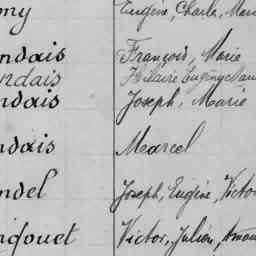 my Eugène, Charle, Mar
ndais François, Marie
ndais Hilaire Eugène Mar
ndais Joseph, Marie
ndais Marcel
ndel Joseph, Eugène, Victor
ngouet Victor, Julien, Aman